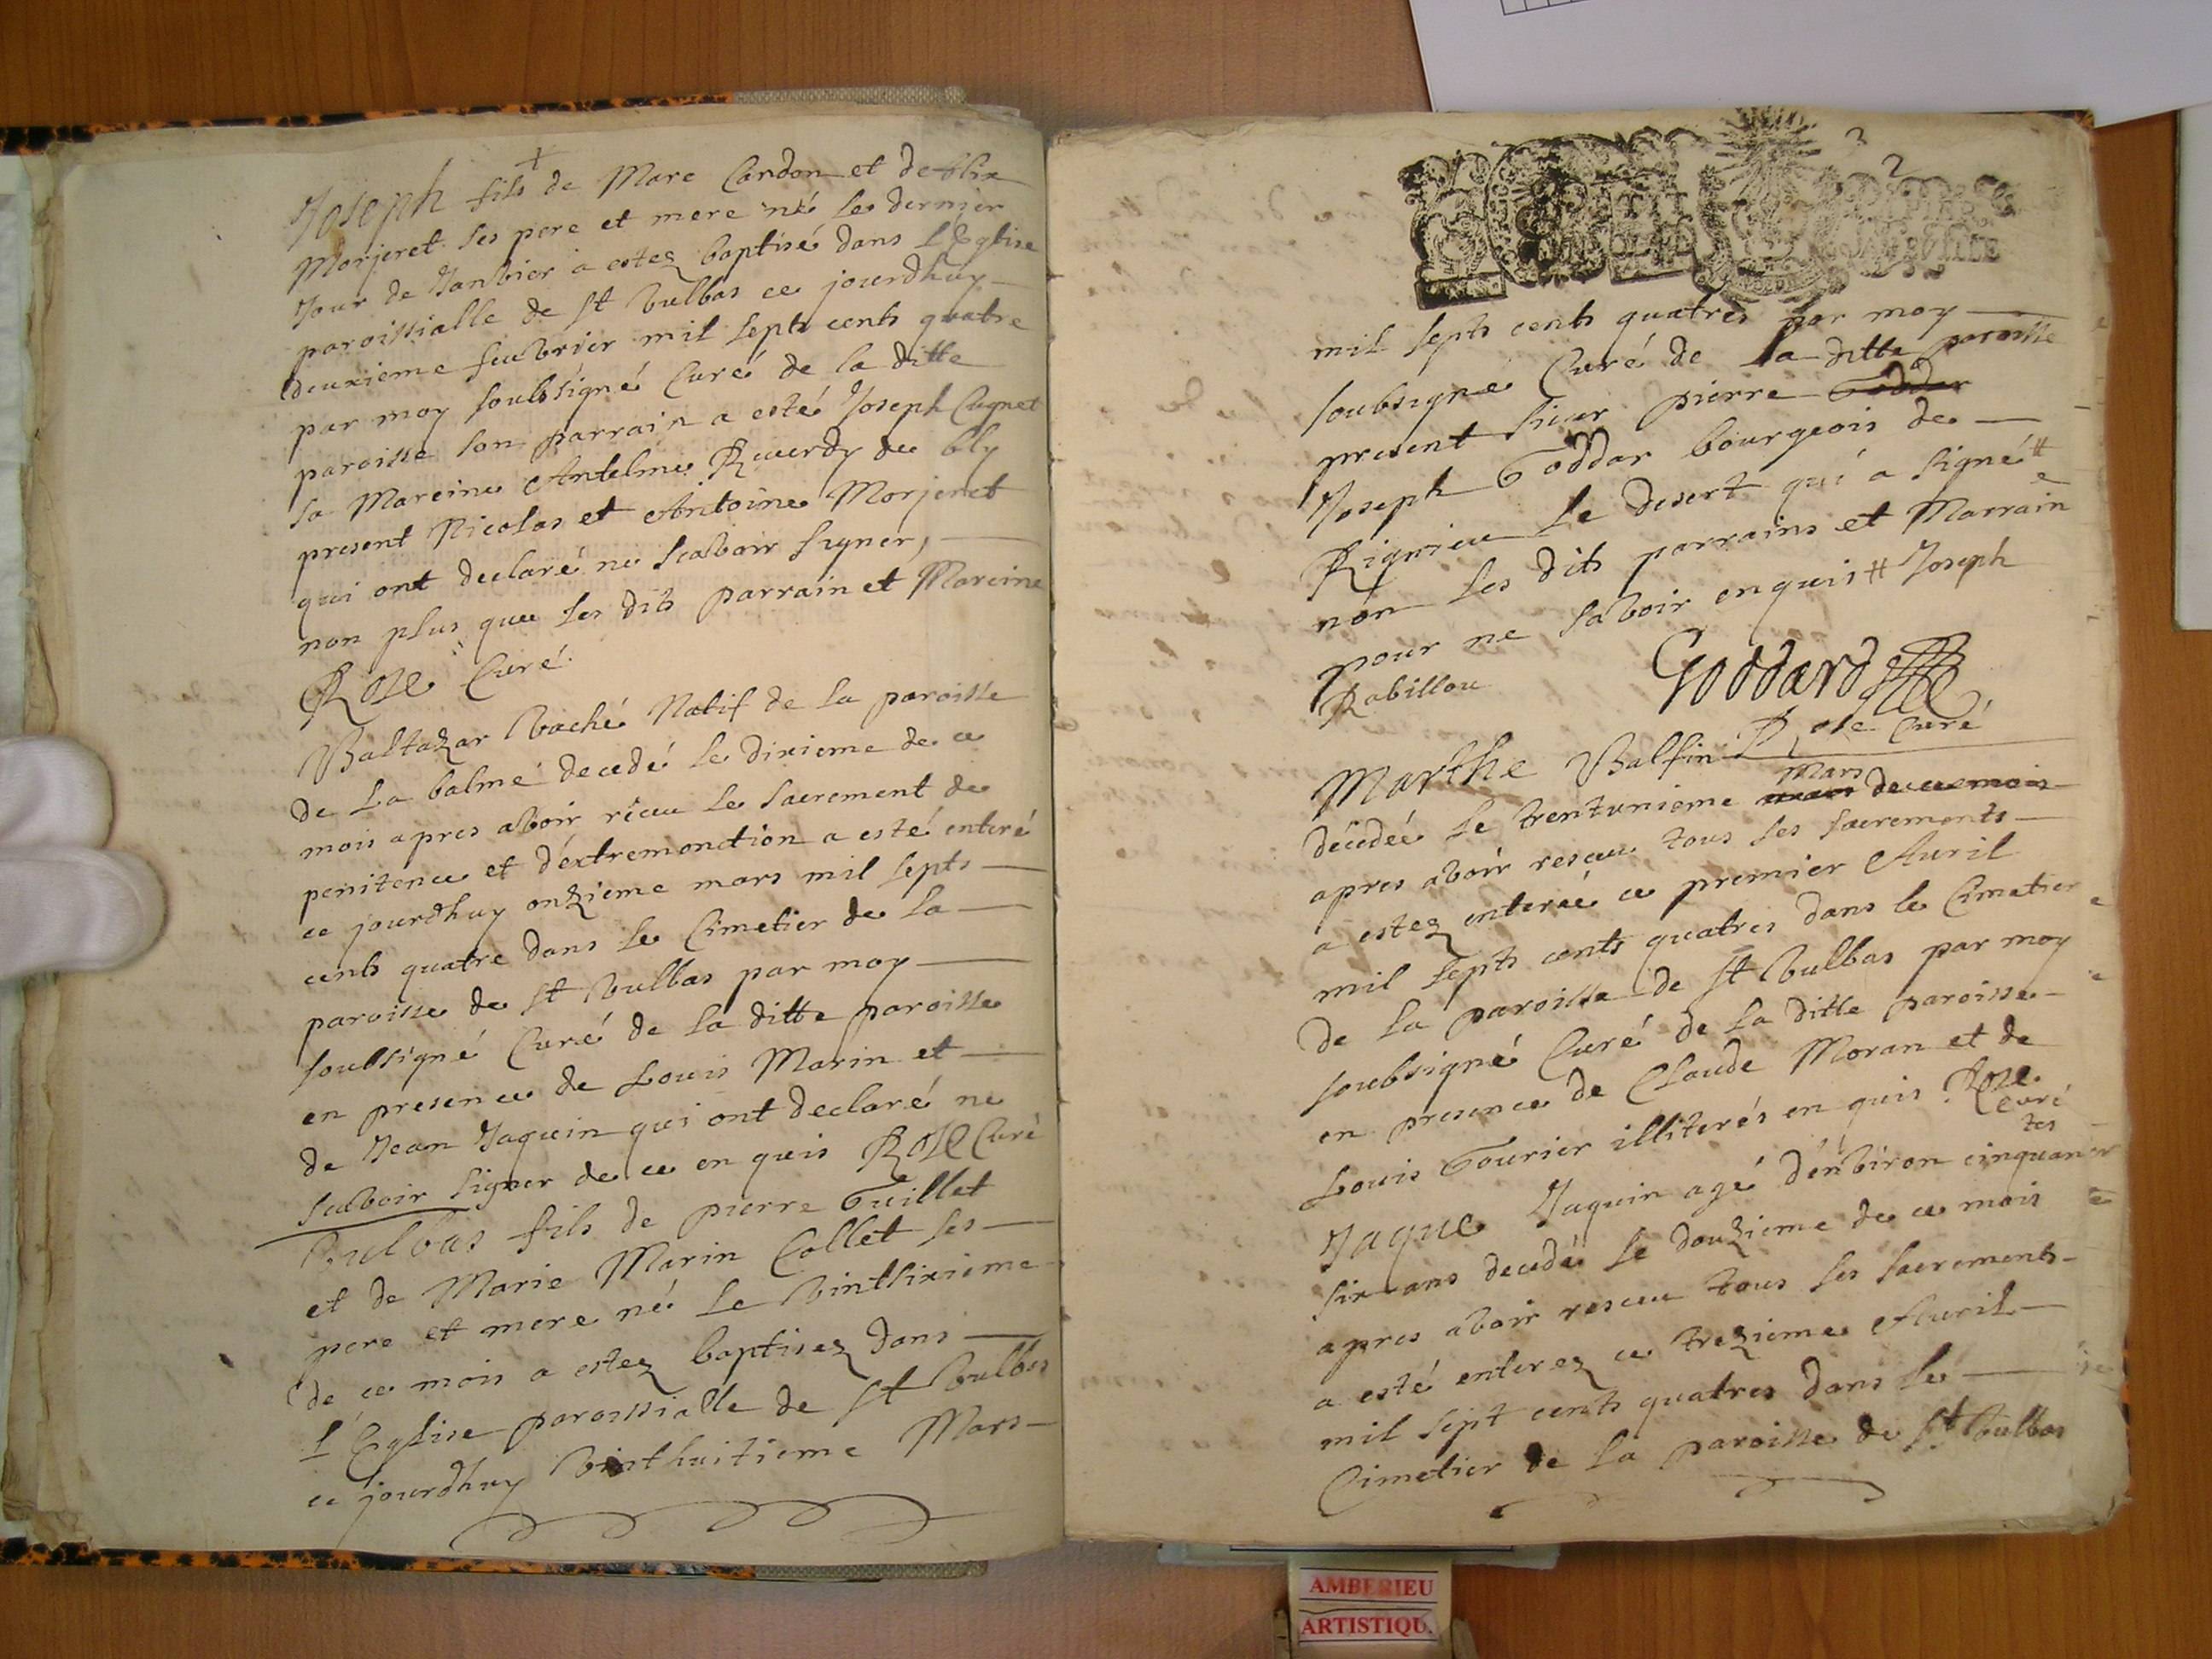 Joseph fils de Marc Cardon et de
Morjeret ses pere et mere né le dernier
Jour de Janvier a estez baptisé dans L'Eglise
paroissialle de st vulbas ce jourdhuy
deuxieme feubvrier mil septs cents quatre
par moy soubssigné Curé de la ditte
paroisse son parrain a esté Joseph Cugnet
sa Mareine Antelme Reuerdy de bly
present Nicolas et Antoine Morjeret
qui ont declaré ne scavoir signer,
non plus que les dits parrain et Mareine
Rose Curé
Baltazar vaché Natif de la paroisse
de La balme decedé le dixieme de ce
mois apres avoir receu le sacrement de
penitence et d'extremonction a esté enteré
ce jourdhuy onzieme mars mil septs
cents quatre dans le Cimetier de la
paroisse de st vulbas par moy
soubsigné Curé de la ditte paroisse
en presence de Louis Marin et
de Jean Jaquin qui ont declaré ne
scavoir signer de ce en quis Rose Curé
Vulbas fils de pierre Guillet
et de Marie Marin Collet ses
pere et mere né le vintsixieme
de ce mois a estez baptisez dans
L'Eglise paroissialle de st vulbas
ce jourdhuy vinthuitieme Mars
3
2
mil septs cents quatres par moy
soubsigné Curé de la ditte paroisse
present sieur pierre Goddar
Joseph Goddar bourgeois de
Rignieu Le desert qui a signé #
non les dits parrains et Marrain
pour ne savoir enquis # Joseph
Rabillou
Goddard
Rose Curé
Marthe Balfin
décedée le trentunieme Mars de ce mois
apres avoir resceu tous les sacrements
a estez enterée ce premier Auril
mil septs cents quatres dans le Cimetier
de la paroisse de st vulbas par moy
soubsigné Curé de la ditte paroisse
en presence de Claude Moran et de
Louis Gourier illiterés en quis Rose
Curé
Jaque Jaquin agé d'environ cinquante
six ans decedé le douzieme de ce mois
apres avoir resceu tous les sacrements
a esté enterez ce trezieme Auril
mil sept cents quatres dans le
Cimetier de la paroisse de st vulbas
AMBERIEU
ARTISTIQU.